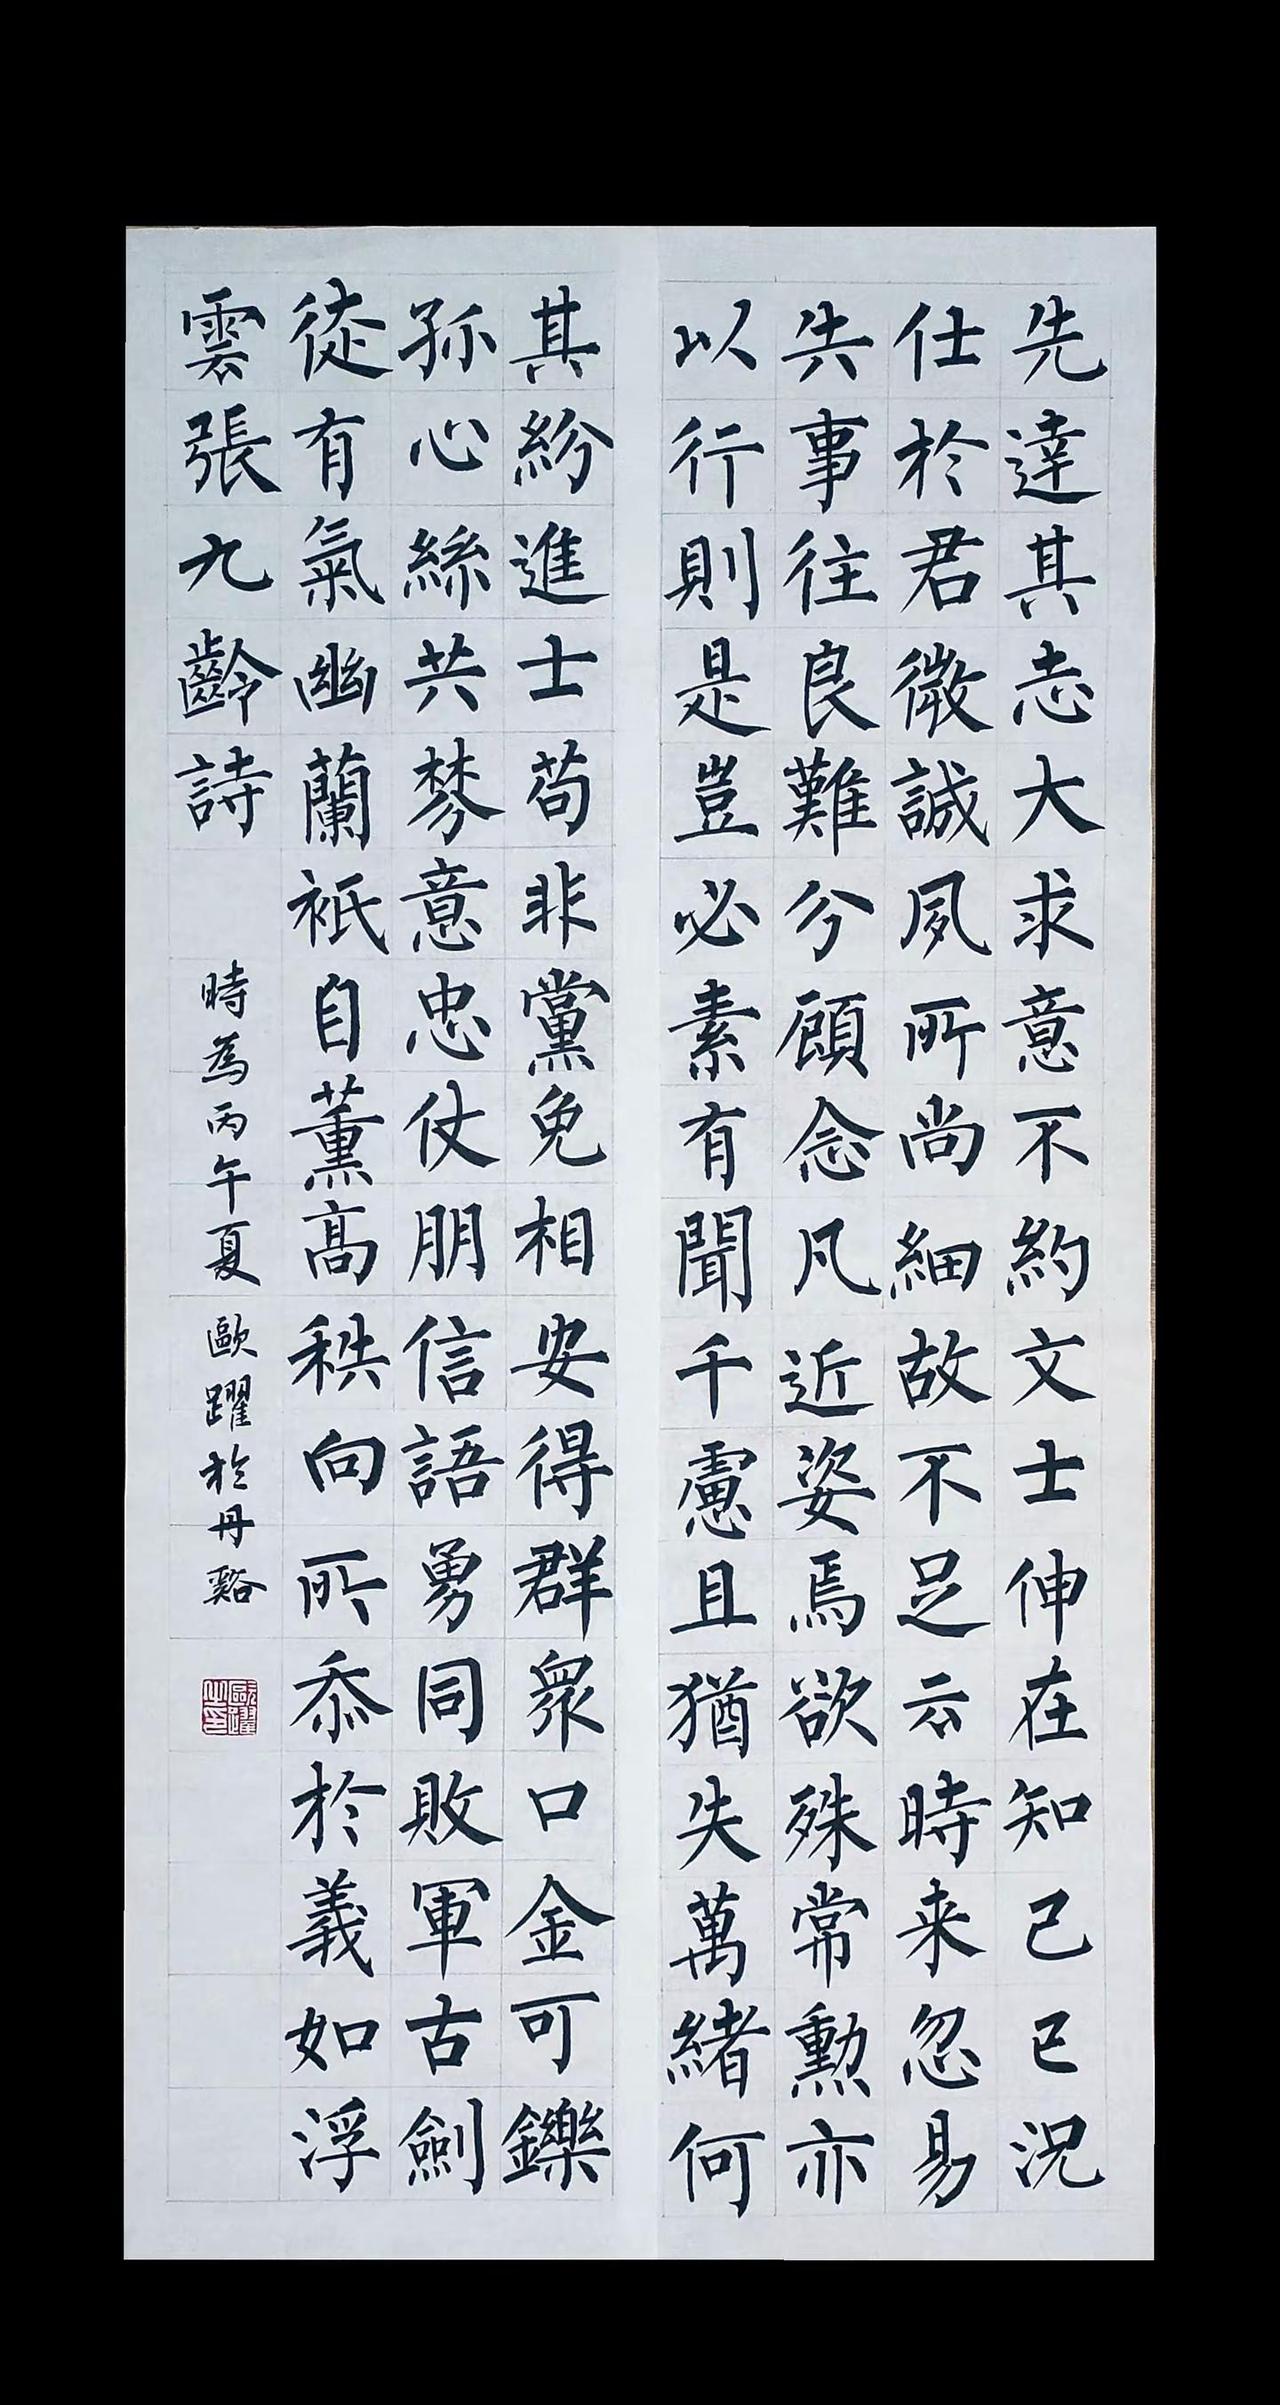 先達其志大求意不約文士伸在知己已況
仕於君微誠夙所尚細故不足云時来忽易
失事往良難兮顧念凡近姿焉欲殊常勲亦
以行則是豈必素有聞千慮且猶失萬緒何
其紛進士苟非黨免相安得群衆口金可鑠
孤心絲共棼意忠仗朋信語勇同敗軍古劍
徒有氣幽蘭祗自薰高秩向所忝於義如浮
雲張九齡詩
時為丙午夏歐躍於丹谿
歐躍之印